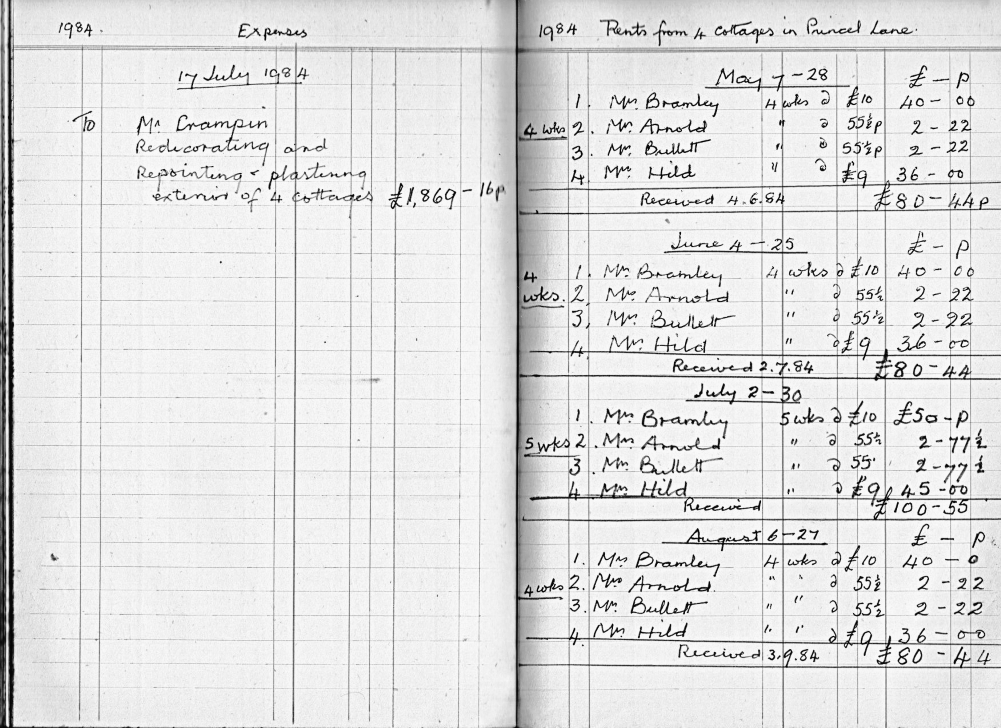 1984. Expenses
17 July 1984
To Mr Crampin
Redecorating and
Repointing & plastering
exterior of 4 cottages £1,869-16p
1984 Rents from 4 cottages in Princel Lane.
May 7-28 £ - p
1. Mrs Bramley 4 wks @ £10 40-00
4 wks 2. Mrs Arnold " @ 55½p 2-22
3. Mrs Bullett " @ 55½p 2-22
4 Mrs Hild " @ £9 36-00
Received 4.6.84 £80-44p
June 4-25 £ - p
4 1. Mrs Bramley 4 wks @ £10 40-00
wks. 2, Mrs Arnold " @ 55½ 2-22
3, Mrs Bullett " @ 55½ 2-22
4. Mrs Hild " @ £9 36-00
Received 2.7.84 £80-44
July 2-30
1. Mrs Bramley 5 wks @ £10 £50-p
5 wks 2. Mrs Arnold " @ 55½ 2-77½
3. Mrs Bullett " @ 55' 2-77½
4. Mrs Hild " @ £9 45-00
Received £100-55
August 6-27 £ - p
1. Mrs Bramley 4 wks @ £10 40-0
4 wks 2. Mrs Arnold " " @ 55½ 2-22
3. Mrs Bullett " " @ 55½ 2-22
4. Mrs Hild " " @ £9 36-00
Received 3.9.84 £80-44